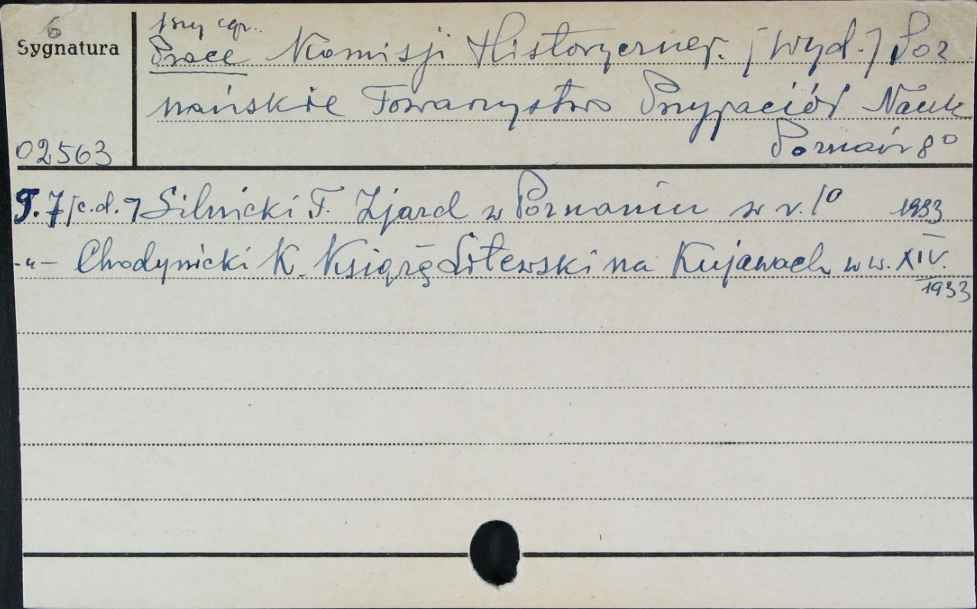 6
Sygnatura
02563
Prace Komisji Historycznej. [Wyd.] Poz
nańskie Towarzystwo Przyjaciół Nauk
Poznań 8°
T. 7 [c.d.] Silnicki T. Zjazd w Poznaniu w r. 1933
-"- Chodynicki K. Książę Litewski na Kujawach w w. XIV.
1933